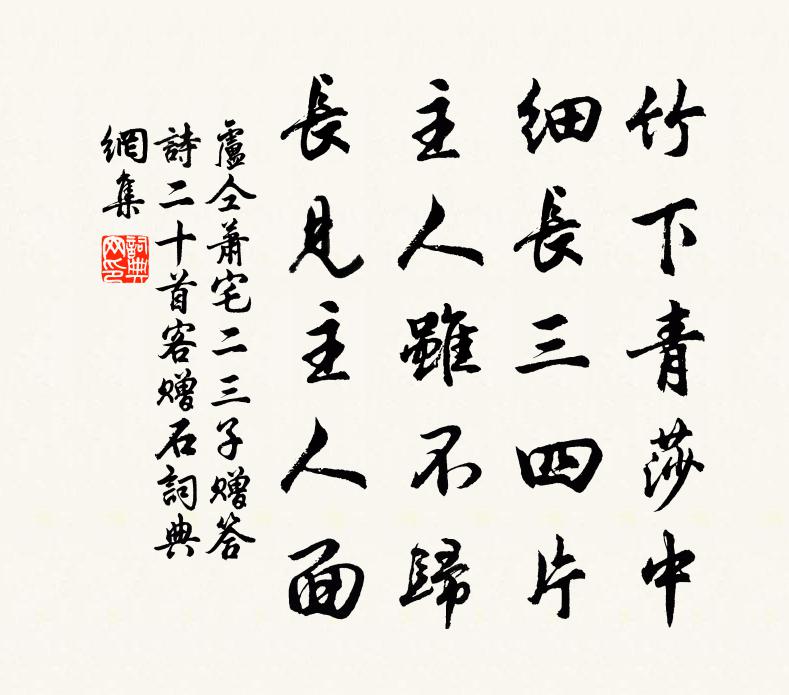 竹下青莎中
細長三四片
主人雖不歸
長見主人面
盧仝蕭宅二三子贈答
詩二十首客贈石詞典
網集
詞典網印